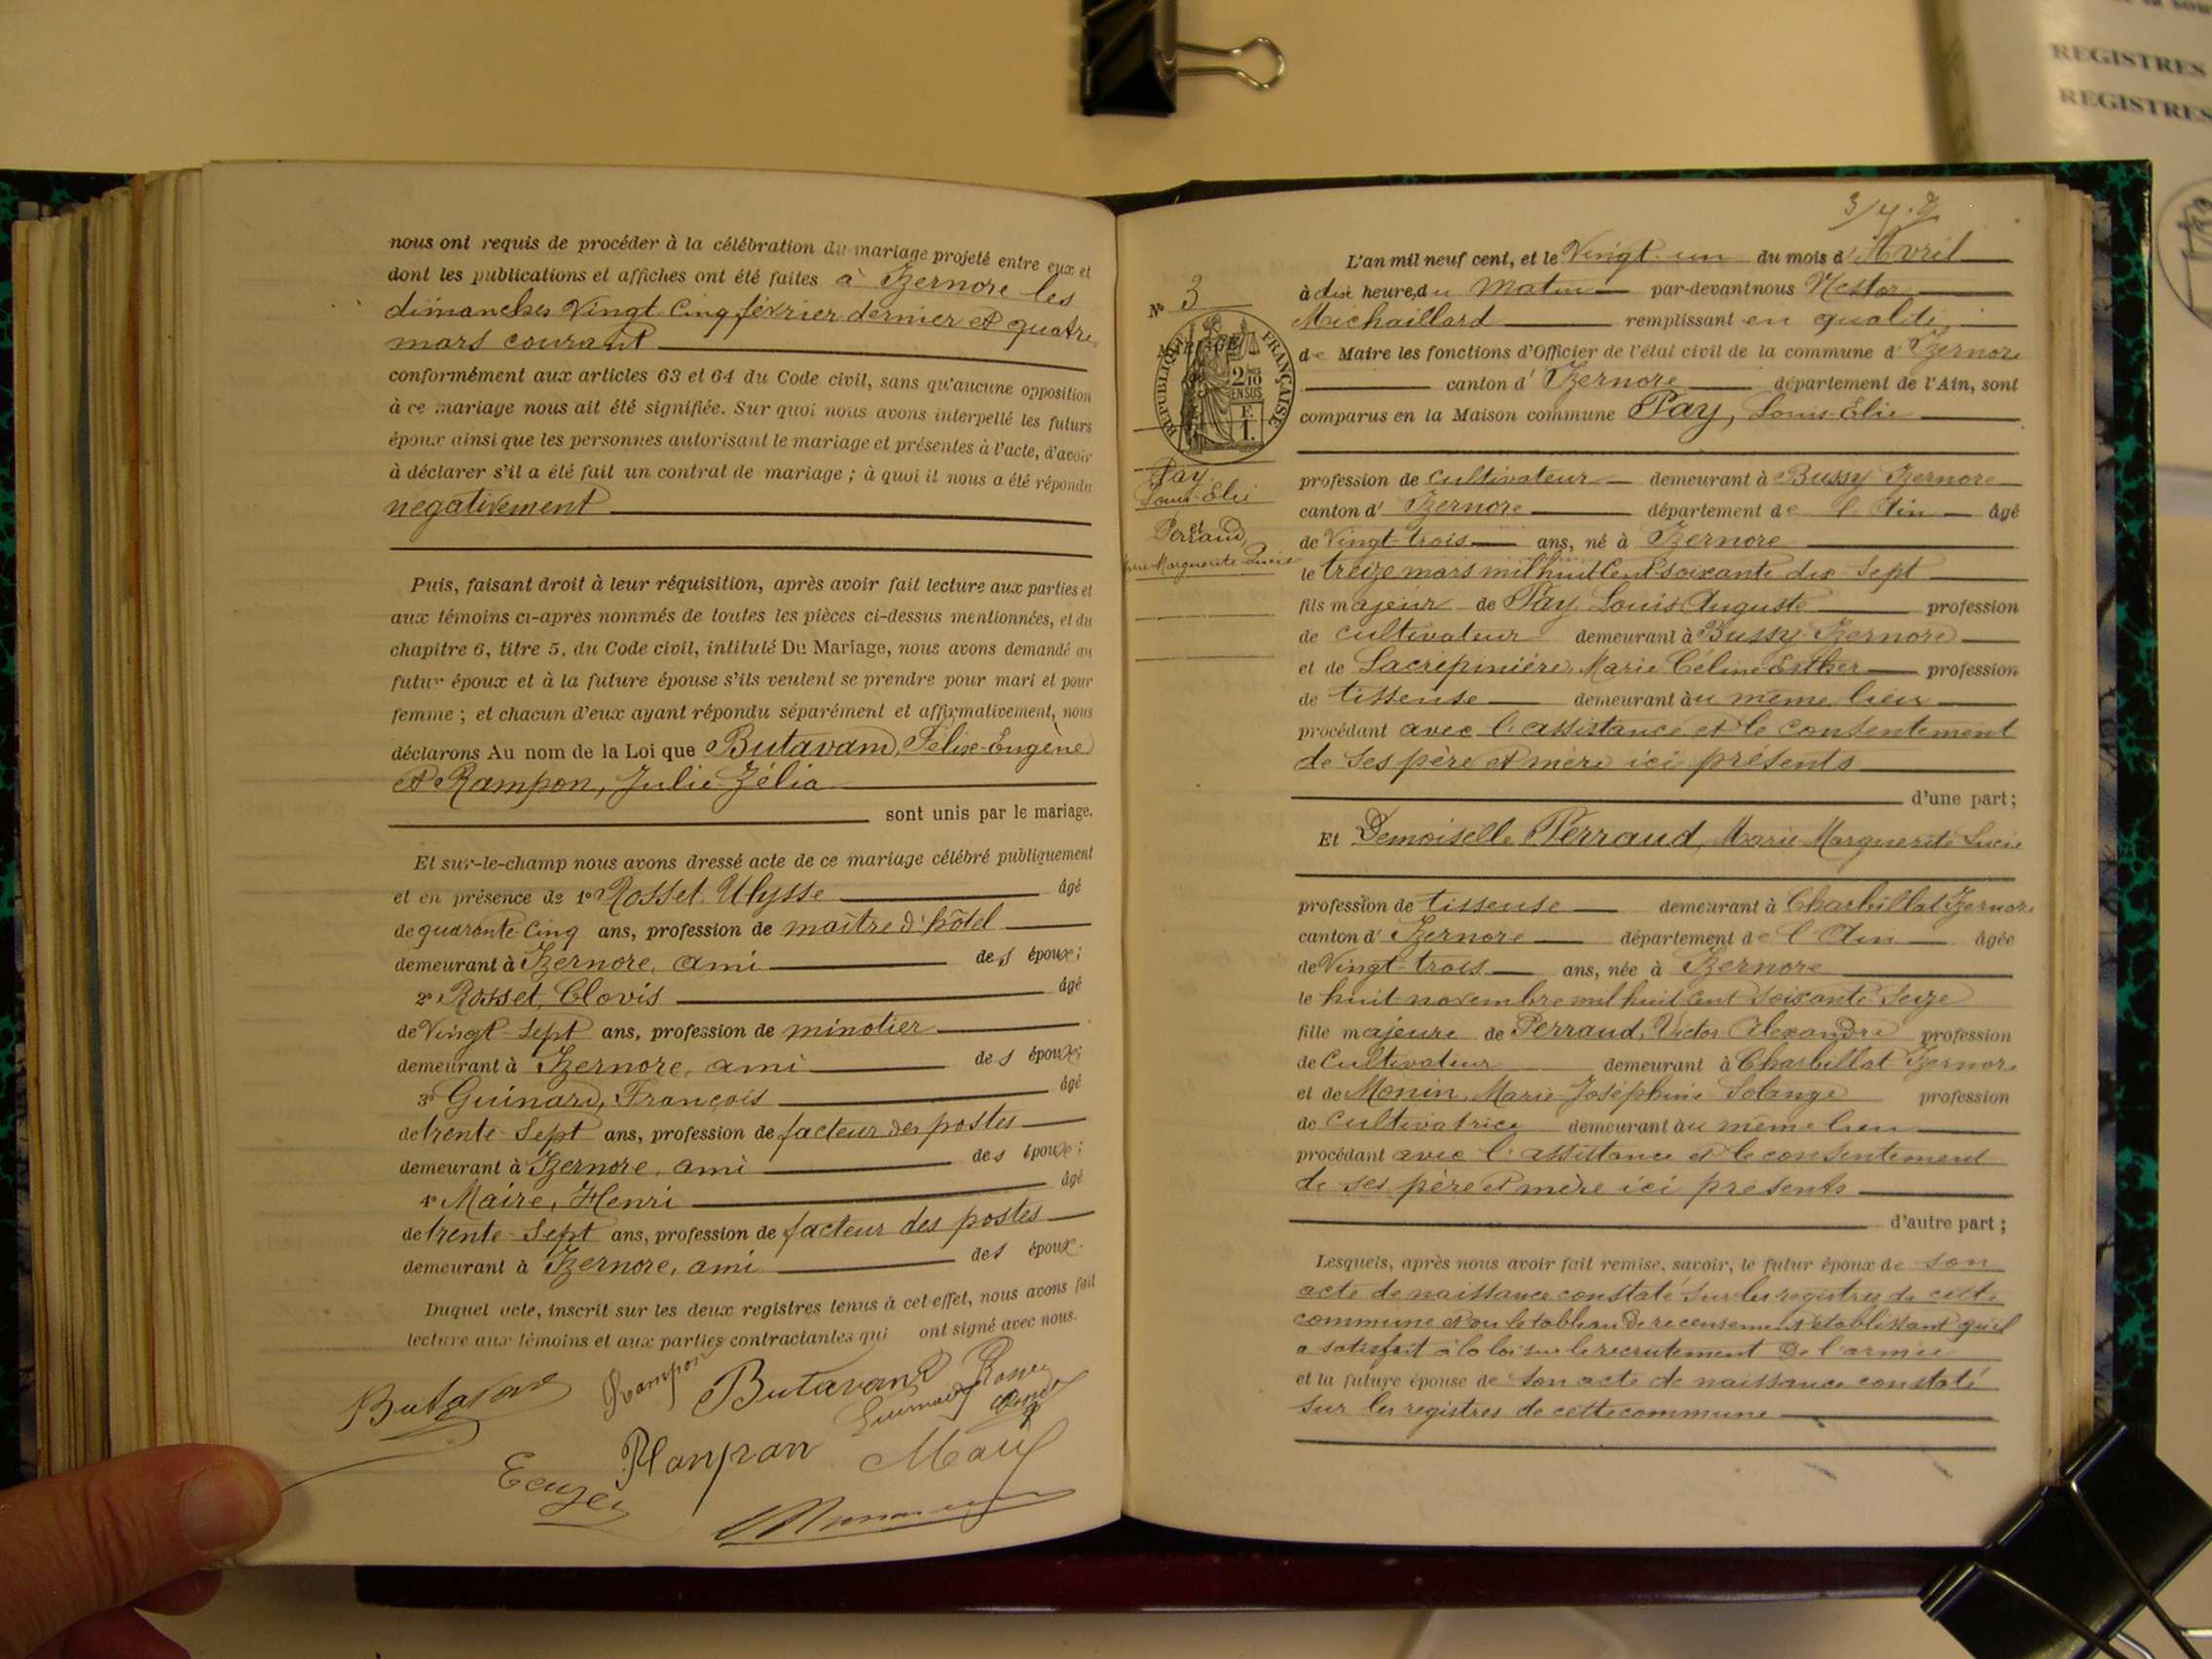 nous ont requis de procéder à la célébration du mariage projeté entre eux et
dont les publications et affiches ont été faites à Izernore les
dimanches vingt cinq février dernier et quatre
mars courant
conformément aux articles 63 et 64 du Code civil, sans qu'aucune opposition
à ce mariage nous ait été signifiée. Sur quoi nous avons interpellé les futurs
époux ainsi que les personnes autorisant le mariage et présentes à l'acte, d'avoir
à déclarer s'il a été fait un contrat de mariage ; à quoi il nous a été répondu
negativement
Puis, faisant droit à leur réquisition, après avoir fait lecture aux parties et
aux témoins ci-après nommés de toutes les pièces ci-dessus mentionnées, et du
chapitre 6, titre 5, du Code civil, intitulé Du Mariage, nous avons demandé au
futur époux et à la future épouse s'ils veulent se prendre pour mari et pour
femme ; et chacun d'eux ayant répondu séparément et affirmativement, nous
déclarons Au nom de la Loi que Butavand, Félix-Eugène
et Rampon, Julie Zélia
sont unis par le mariage.
Et sur-le-champ nous avons dressé acte de ce mariage célébré publiquement
et en présence de 1° Rosset, Ulysse âgé
de quarante cinq ans, profession de maître d'hôtel
demeurant à Izernore, ami des époux ;
2° Rosset, Clovis âgé
de vingt-sept ans, profession de minotier
demeurant à Izernore, ami des époux ;
3° Guinard, François âgé
de trente-sept ans, profession de facteur des postes
demeurant à Izernore, ami des époux ;
4° Maire, Henri âgé
de trente-sept ans, profession de facteur des postes
demeurant à Izernore, ami des époux.
Duquel acte, inscrit sur les deux registres tenus à cet effet, nous avons fait
lecture aux témoins et aux parties contractantes qui ont signé avec nous.
Butavand Rampon Butavand
Guinard
3/4.
L'an mil neuf cent, et le Vingt-un du mois d'Avril
à dix heures du Matin par-devant nous Nestor
Michaillard remplissant en qualité
de Maire les fonctions d'Officier de l'état civil de la commune d'Izernore
canton d'Izernore département de l'Ain, sont
comparus en la Maison commune Pay, Louis-Elie
N° 3
RÉPUBLIQUE FRANÇAISE
2/10 EN SUS
F. 1.
Pay
Louis-Elie
et
Perraud,
Marie-Marguerite-Lucie
profession de cultivateur demeurant à Bussy Izernore
canton d'Izernore département de l'Ain âgé
de Vingt-trois ans, né à Izernore
le treize mars mil huit cent soixante dix-sept
fils majeur de Pay, Louis Auguste profession
de cultivateur demeurant à Bussy Izernore
et de Lacrépinière, Marie Céline Esther profession
de tisseuse demeurant au même lieu
procédant avec l'assistance et le consentement
de ses père et mère ici présents
d'une part ;
Et Demoiselle Perraud, Marie Marguerite Lucie
profession de tisseuse demeurant à Charbillat Izernore
canton d'Izernore département de l'Ain âgée
de Vingt-trois ans, née à Izernore
le huit novembre mil huit cent soixante-seize
fille majeure de Perraud, Victor Alexandre profession
de cultivateur demeurant à Charbillat Izernore
et de Monin, Marie Joséphine Solange profession
de cultivatrice demeurant au même lieu
procédant avec l'assistance et le consentement
de ses père et mère ici présents
d'autre part ;
Lesquels, après nous avoir fait remise, savoir, le futur époux de son
acte de naissance constaté sur les registres de cette
commune et vu le tableau de recensement établissant qu'il
a satisfait à la loi sur le recrutement de l'armée
et la future épouse de son acte de naissance constaté
sur les registres de cette commune
REGISTRES
REGISTRES